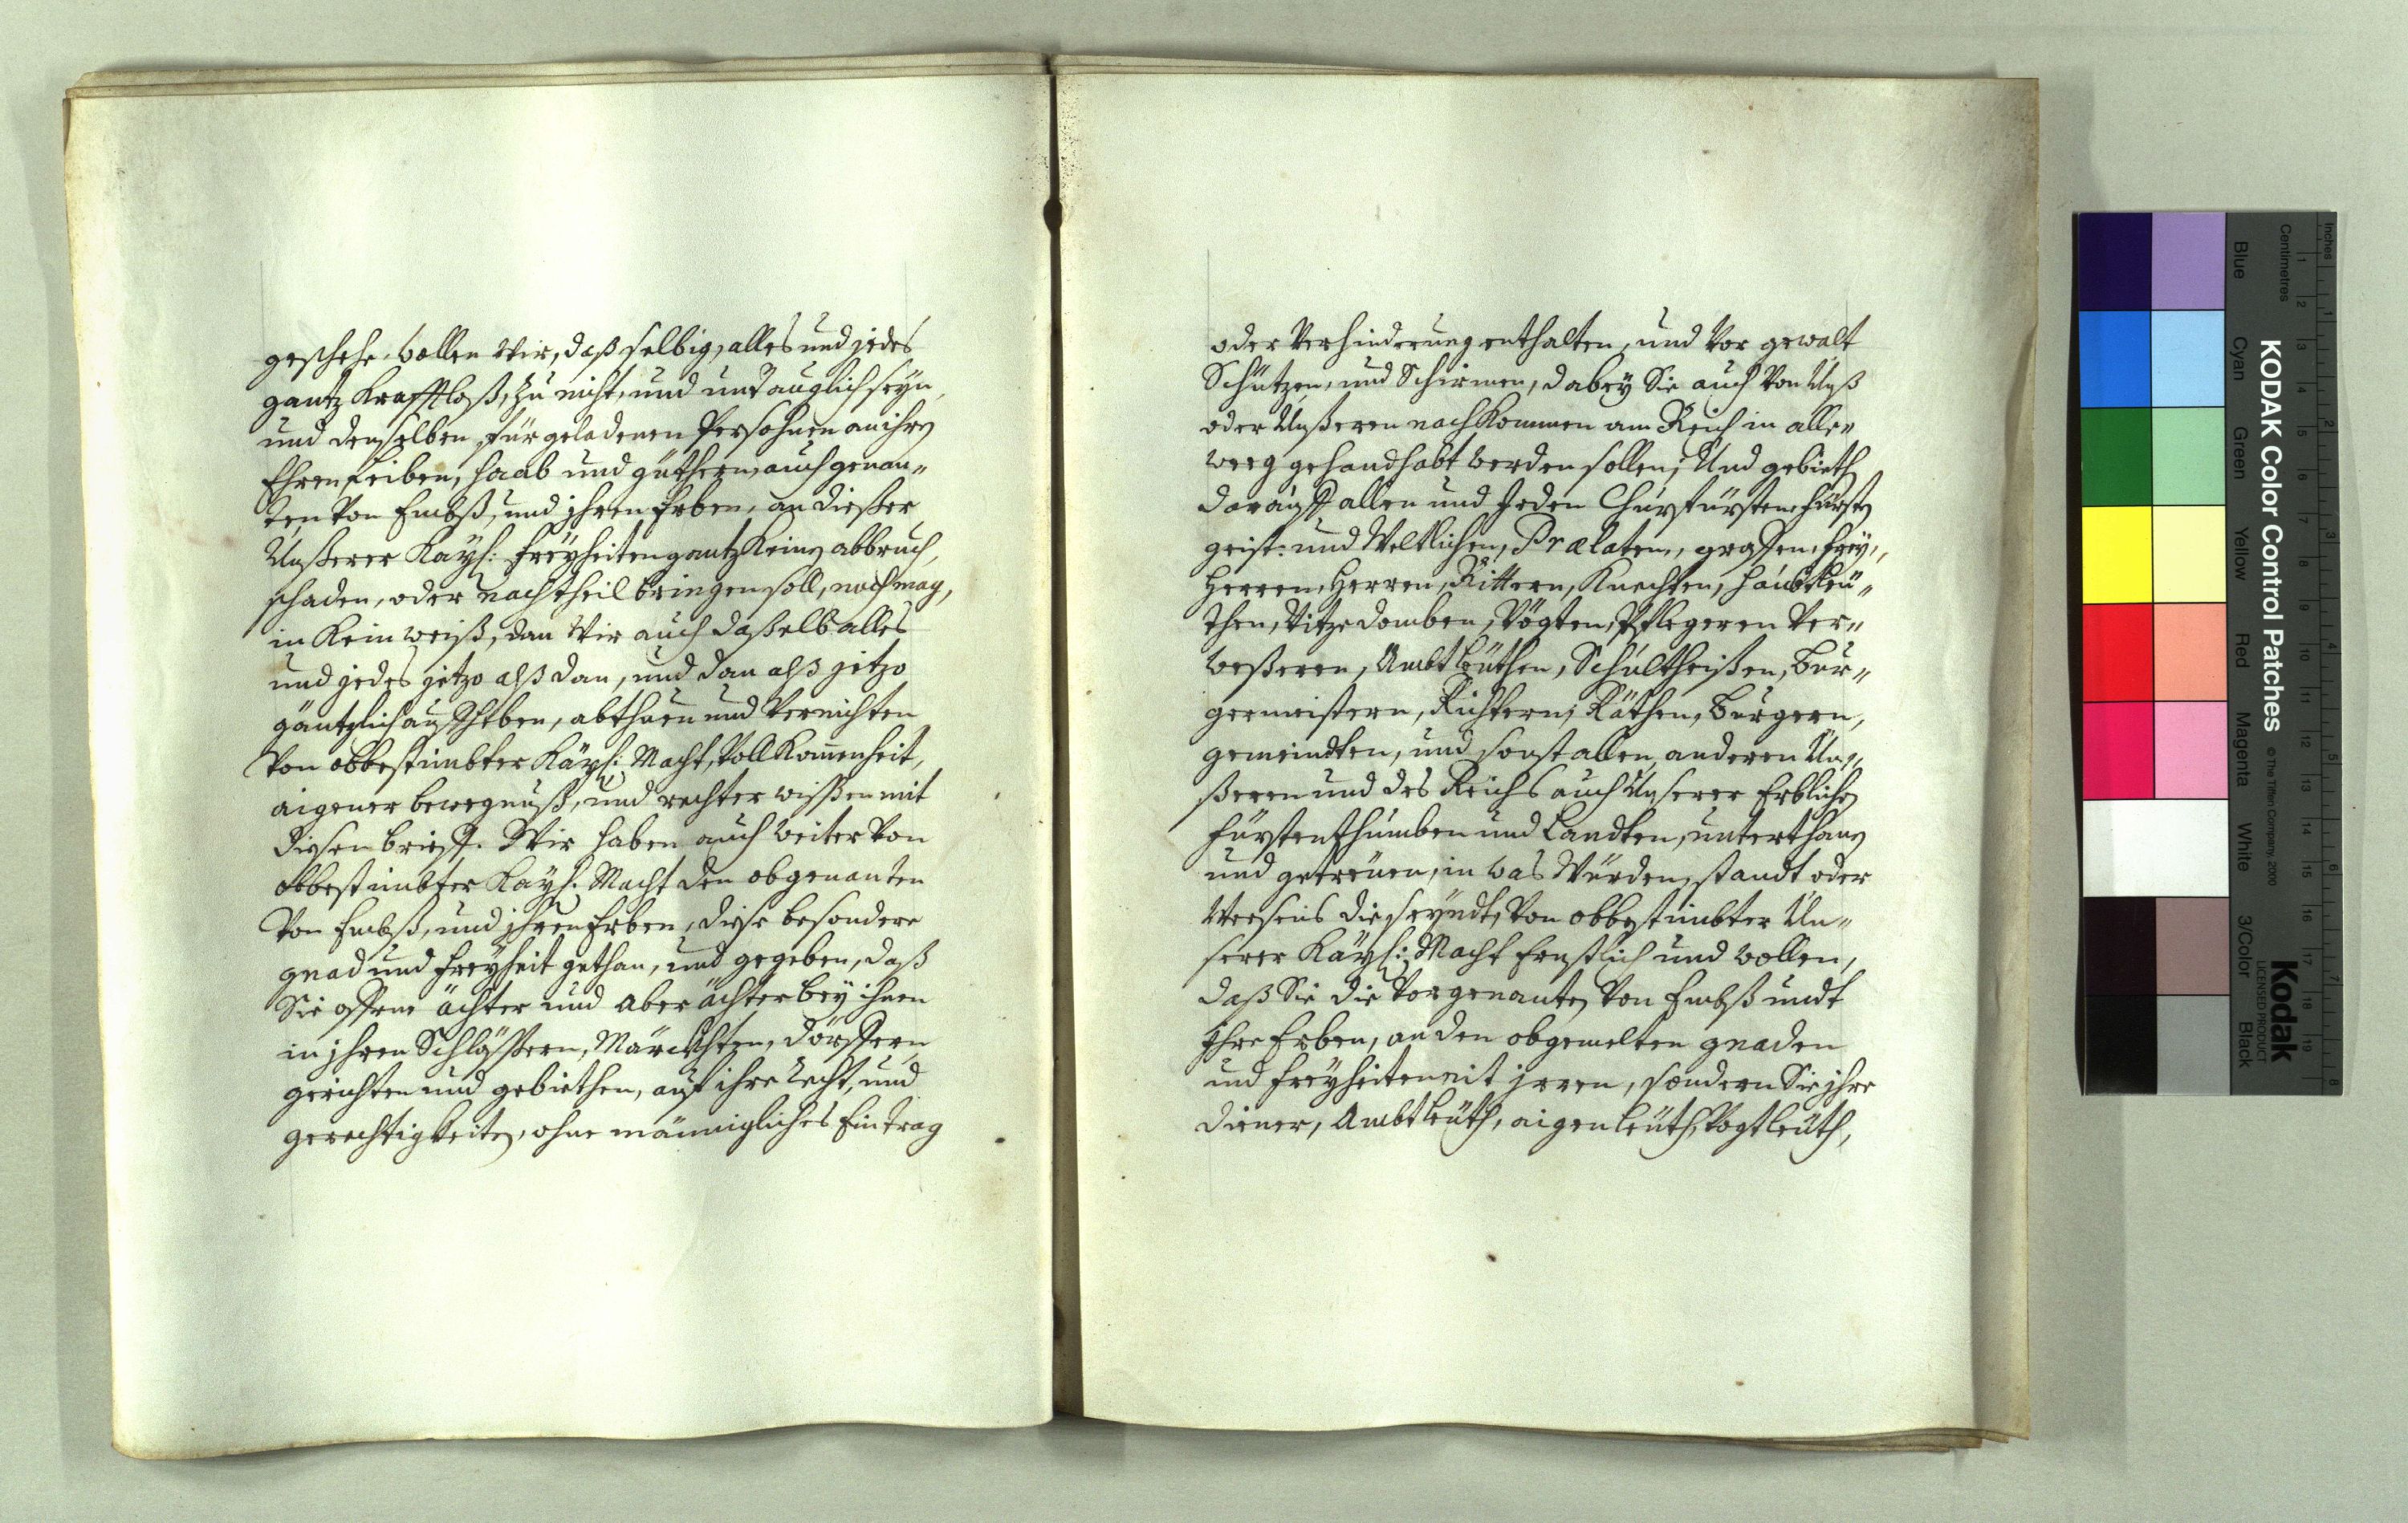 geschehe. wollen Wir, daß selbig, alles und jedes
gantz Krafftloß, zu nicht, und untauglich seyn,
und denselben fürgeladenen Persohnen an ihren
Ehren, Leiben, Haab und güthern, auch genan„
ten von Embß, und ihren Erben, an dießer
Unßerer Kayß: freyheiten gantz Keinen abbruch,
schaden, oder nachtheil bringen soll, noch mag,
in Kein weiß, dan Wir auch daßelb alles
und jedes jetzo alß dan, und dan alß jetzo
gäntzlich auffheben, abthuen und Vernichten
Von obbestimbter Kayß: Macht, Vollkom̄enheit,
aigener bewegnuß, und rechter wißen mit
diesem brieff. Wir haben auch weiter von
obbestimbter Kayß. Macht den obgenanten
Von Embß, und ihren Erben, diese besondere
gnad und freyheit gethan, und gegeben, daß
Sie offene ächter und aberächter bey ihnen
in ihren Schlößern, Märckhten, dörffern,
gerichten und gebiethen, auf ihre recht, und
gerechtigkeiten, ohne männigliches Eintrag
oder Verhinderung enthalten, und Vor gewalt
Schützen, und Schirmen, dabey Sie auch Von Unß
oder Unßeren nachkommen am Reich in alle„
weeg gehandhabt werden sollen; Und gebieth
darauff allen und Jeden Churfürsten, fürsten
geist: und Weltlichen, Prælaten, graffen, frey„
Herren, Herren, Rittern, Knechten, Haubtleü„
then, Vitzedomben, Vögten, Pflegeren Ver„
weßeren, Ambtleüthen, Schultheißen, Bur„
germeistern, Richtern, Räthen, Burgern,
gemeindten, und sonst allen anderen Un„
ßeren und des Reichs auch Unserer Erblichen
fürstenthumben und Landten, unterthanen
und getreüen, in was Würden, standt oder
Weesens die seyndt, Von obbestimbter Un„
serer Kayß: Macht Ernstlich und wollen,
daß Sie die Vorgenanten Von Embß undt
Ihre Erben, an den obgemelten gnaden
und freyheiten nit irren, sondern Sie ihre
diener, Ambtleüth, aigenleüth, Vogtleüth,
KODAK Color Control Patches
© The Tiffen Company, 2000
Kodak
LICENSED PRODUCT
Inches
Centimetres
Blue Cyan Green Yellow Red Magenta White 3/Color Black
1 2 3 4 5 6 7 8
1 2 3 4 5 6 7 8 9 10 11 12 13 14 15 16 17 18 19